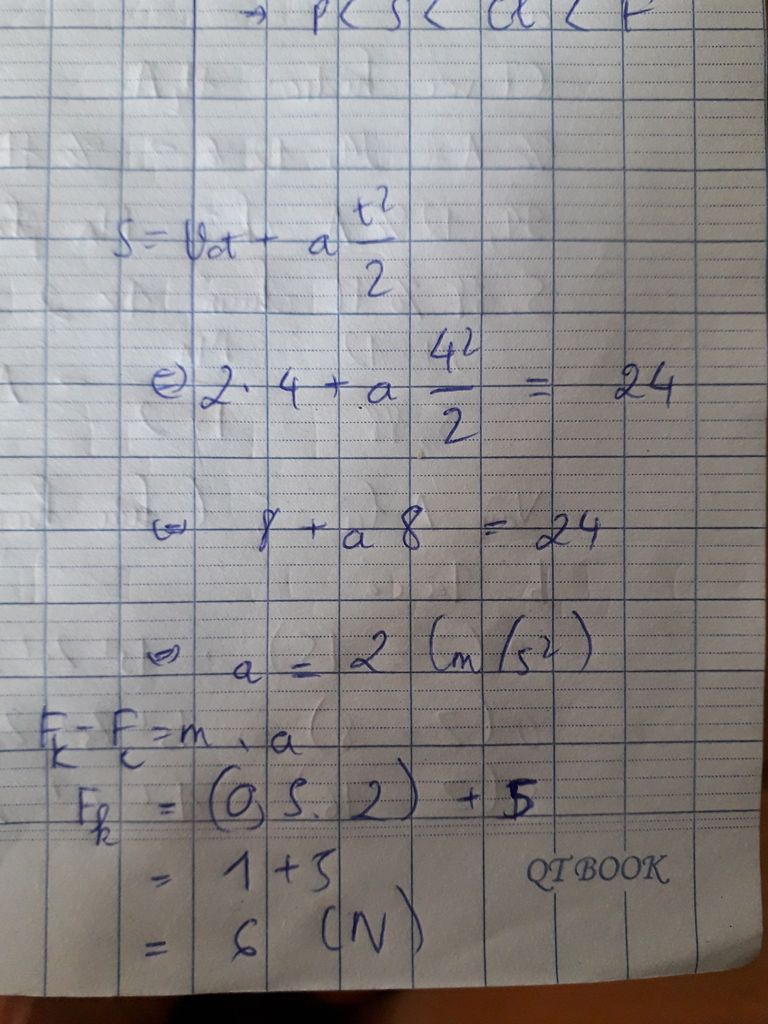 → P < S < < F
S = V₀t + a t²/2
⇔ 2. 4 + a 4²/2 = 24
⇔ 8 + a 8 = 24
⇔ a = 2 (m/s²)
F_k - F_c = m . a
F_k = (0,5. 2) + 5
= 1 + 5
= 6 (N)
QT BOOK